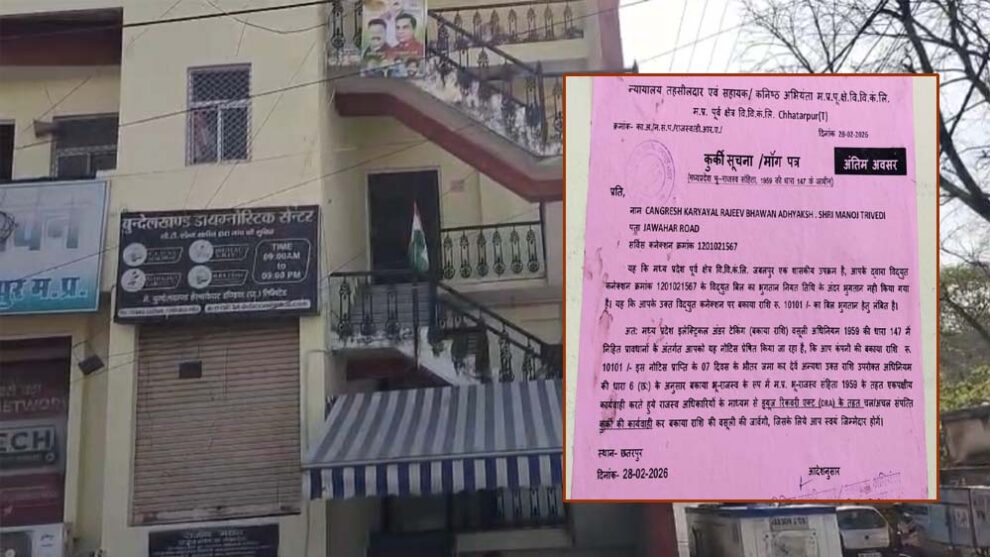 बुन्देलखण्ड डायग्नोस्टिक सेन्टर
TIME
09:00AM
to
09:00 PM
पुर म.प्र.
NETWORK
TECH
न्यायालय तहसीलदार एवं सहायक/ कनिष्ठ अभियंता म.प्र.पू.क्षे.वि.वि.कं.लि.
म.प्र. पूर्व क्षेत्र वि.वि.कं.लि. Chhatarpur[T]
क्रमांक- का.अ./न.स.प./राजस्व/डी.आर.ए./
दिनांक 28-02-2026
कुर्की सूचना /मॉग पत्र
अंतिम अवसर
[मध्यप्रदेश भू-राजस्व संहिता, 1959 की धारा 147 के अधीन]
प्रति,
नाम CANGRESH KARYAYAL RAJEEV BHAWAN ADHYAKSH . SHRI MANOJ TRIVEDI
पता JAWAHAR ROAD
सर्विस कनेक्शन क्रमांक 1201021567
यह कि मध्य प्रदेश पूर्व क्षेत्र वि.वि.कं.लि. जबलपुर एक शासकीय उपक्रम है, आपके द्वारा विद्युत
कनेक्शन क्रमांक 1201021567 के विद्युत बिल का भुगतान नियत तिथि के अंदर भुगतान नही किया गया
है। यह कि आपके उक्त विद्युत कनेक्शन पर बकाया राशि रु. 10101 /- का बिल भुगतान हेतु लंबित है।
अत: मध्य प्रदेश इलेक्ट्रिकल अंडर टेकिंग (बकाया राशि) वसूली अधिनियम 1959 की धारा 147 में
निहित प्रावधानों के अंतर्गत आपको यह नोटिस प्रेषित किया जा रहा है, कि आप कंपनी की बकाया राशि रु.
10101 /- इस नोटिस प्राप्ति के 07 दिवस के भीतर जमा कर देवें अन्यथा उक्त राशि उपरोक्त अधिनियम
की धारा 6 (छ:) के अनुसार बकाया भू-राजस्व के रुप में म.प्र. भू-राजस्व संहिता 1959 के तहत एकपक्षीय
कार्यवाही करते हुये राजस्व अधिकारियों के माध्यम से ड्यूज रिकवरी एक्ट (DRA) के तहत चल/अचल संपत्ति
कुर्की की कार्यवाही कर बकाया राशि की वसूली की जावेगी, जिसके लिये आप स्वयं जिम्मेदार होगें।
स्थान- छतरपुर
दिनांक- 28-02-2026
आदेशनुसार